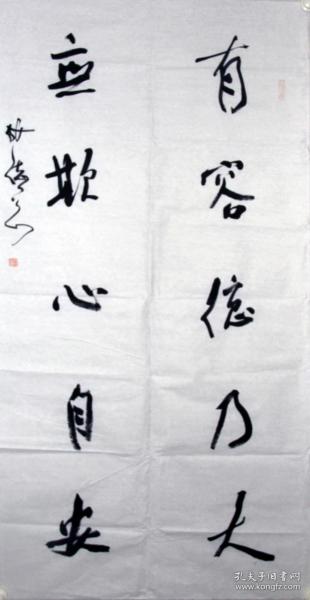 有容德乃大
無欺心自安
孔夫子旧书网
www.kongfz.com